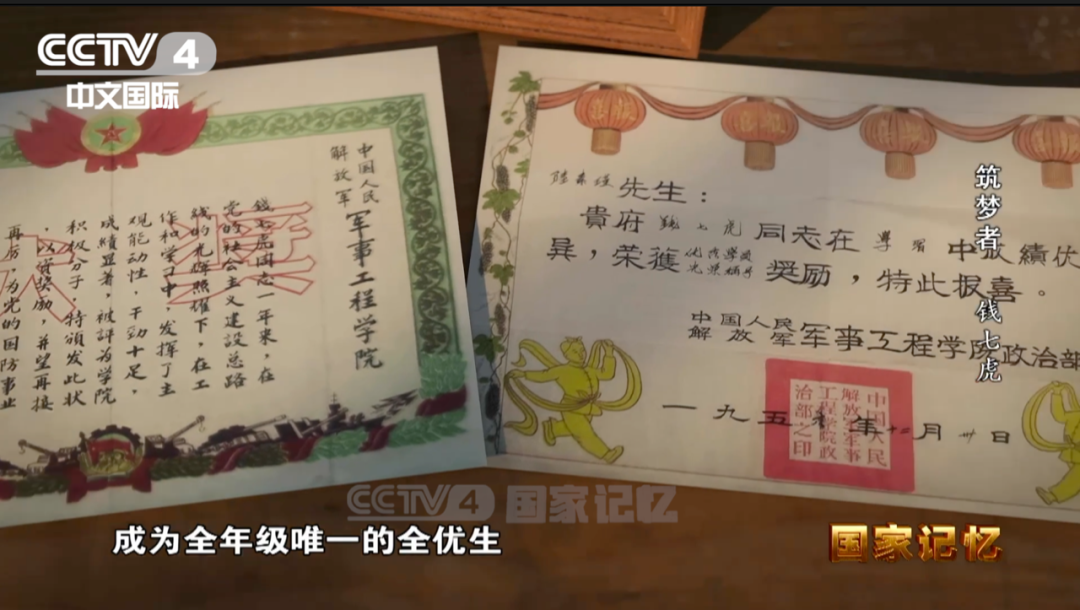 CCTV 4
中文国际
中国人民
解放军
军事工程学院
钱七虎同志一年来，在
党的社会主义建设总路
线的光辉照耀下，在工
作和学习中，发挥了主
观能动性，干劲十足，
成绩显著，被评为学院
积极分子，特颁发此状
，以资奖励，并望再接
再厉，为党的国防事业
奖
先生：
貴府 钱七虎 同志在 學習 中成績优
異，荣獲 奨励，特此报喜。
中国人民
解放军
军事工程学院政治部
一九五 年十二月卅日
中国人民
解放军军事
工程学院政
治部之印
筑梦者 钱七虎
CCTV 4 国家记忆
成为全年级唯一的全优生
国家记忆